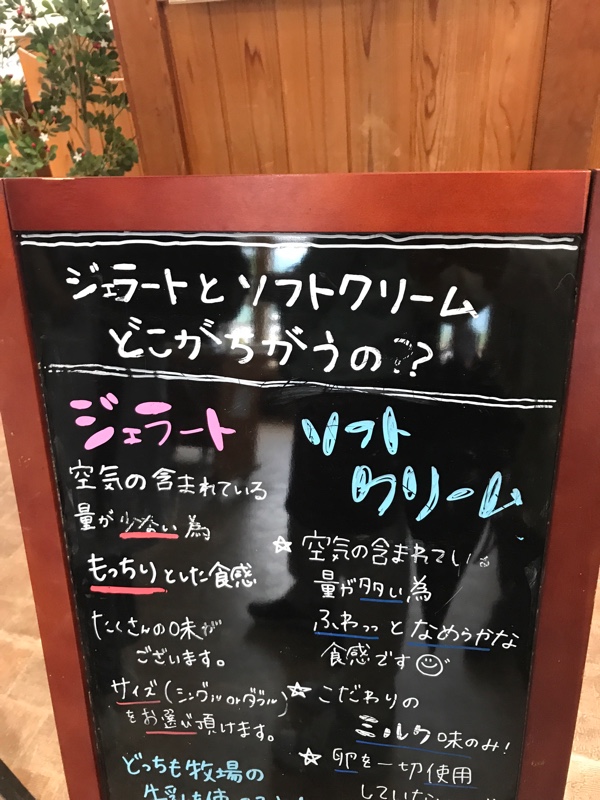 ジェラートとソフトクリーム
どこがちがうの??
ジェラート
空気の含まれている
量が少ない為
もっちりとした食感
たくさんの味が
ございます。
サイズ(シングルorダブル)
をお選び頂けます。
どっちも牧場の
牛乳を使
ソフト
クリーム
☆空気の含まれている
量が多い為
ふわっっとなめらかな
食感です☺
☆こだわりの
ミルク味のみ!
☆卵を一切使用
していない